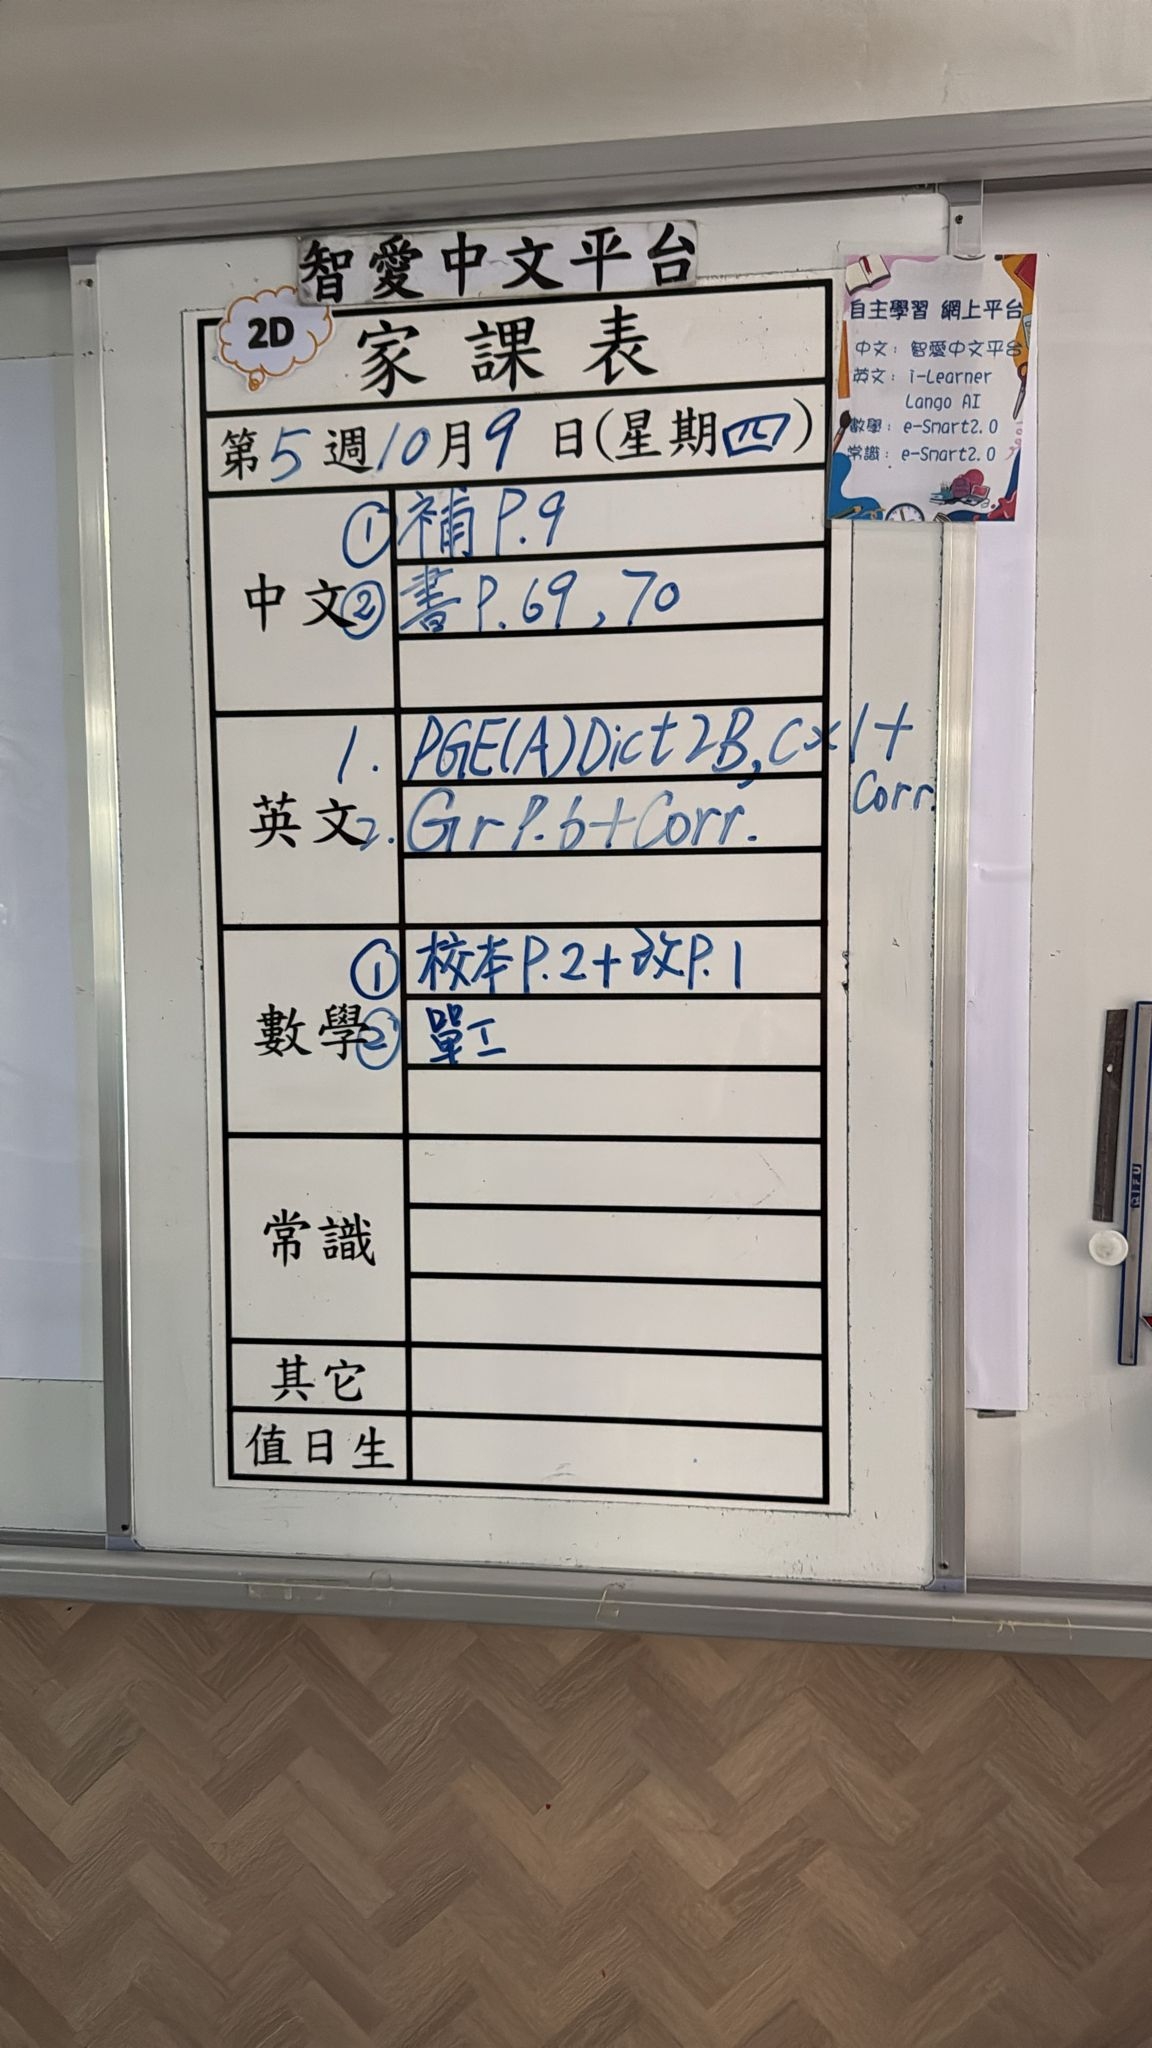 智愛中文平台
2D
家課表
第5週10月9日(星期四)
中文
① 補 P.9
② 書 P.69, 70
英文
1. PGE(A) Dict 2B, C×1+
Corr.
2. Gr P.6+Corr.
數學
① 校本 P.2+改P.1
② 單工
常識
其它
值日生
自主學習 網上平台
中文：智愛中文平台
英文：i-Learner
Lango AI
數學：e-Smart2.0
常識：e-Smart2.0